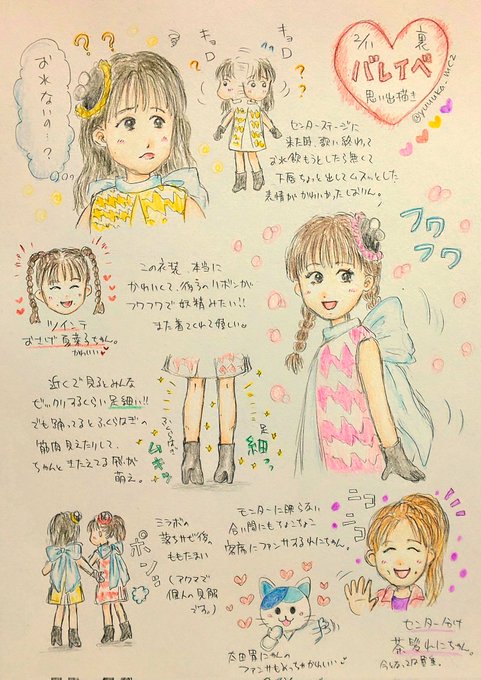 2/11 裏
バレイベ
思い出描き
@yuuuko_mcz
お水ないの…?
? ? ?
キョロ
キョロ
? ?
センターステージに
来た時、歌い終わって
お水飲もうとしたら無くて
下唇ちょっと出してムスッとした
表情がかわいかったしおりん。
フワ
フワ
この衣装、本当に
かわいくて、後ろのリボンが
フワフワで妖精みたい!!
また着てくれて嬉しい
ツインテ
おさげ夏菜子ちゃん。
かわいい
近くで見るとみんな
ビックリするくらい足細い!!
でも踊ってるとふくらはぎの
筋肉見えたりして、
ちゃんときたえてる感が
萌え。
ふくらはぎ
ムキッ
足
細っっ
ミラボの
落ちサビ後の
ももたまい
(アクマで
個人の見解
です。)
ポンッ
モニターに映らない
合い間にもちょこちょこ
客席にファンサするれにちゃん。
ニコ
ニコ
センター分け
茶髪れにちゃん。
太田胃にゃんの
ファンサもめっちゃかわいい